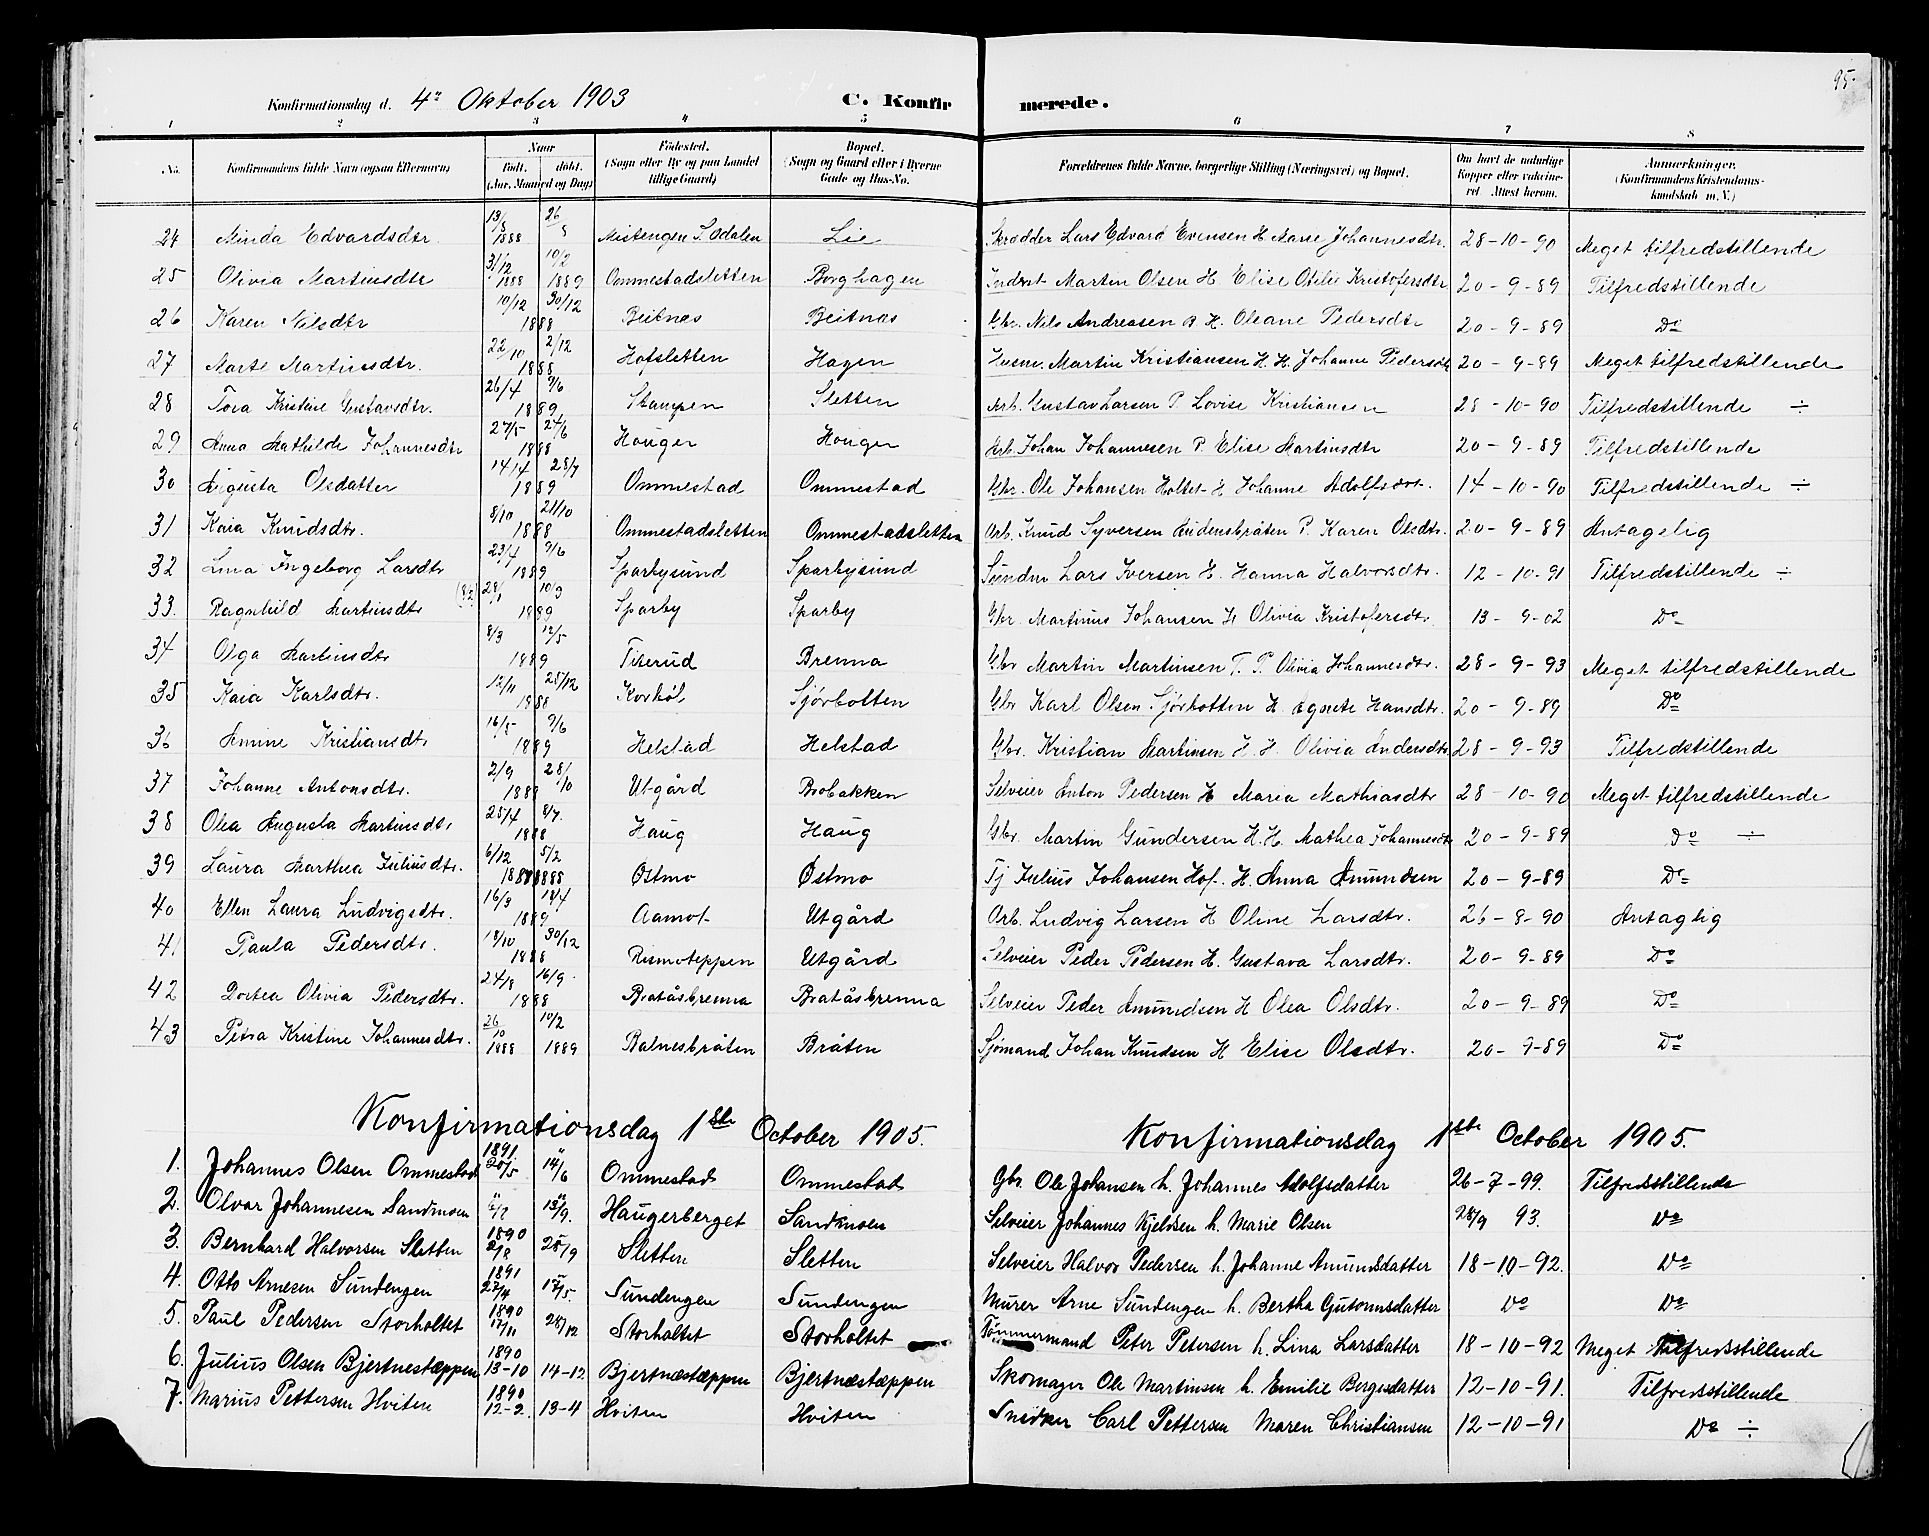 95.
Konfirmationsdag d. 4de Oktober 1903 C. Konfirmerede.
1 2 3 4 5 6 7 8
No. Konfirmandens fulde Navn (ogsaa Efternavn) Naar født. døbt. (Aar, Maaned og Dag) Födested. (Sogn eller By og paa Landet tillige Gaard) Bopæl. (Sogn og Gaard eller i Byerne Gade og Hus-No. Forældrenes fulde Navne, borgerlige Stilling (Næringsvei) og Bopæl. Om havt de naturlige Kopper eller vaccineret. Attest herom. Anmærkninger. (Konfirmandens Kristendomskundskab m. V.)
24 Minda Edvardsdtr. 13/8 1888 26/8 Mistengen S. Odalen Lie Skrædder Lars Edvard Evensen H. Marie Johannesdtr. 28-10-90 Meget tilfredstillende
25 Olivia Martinsdtr 31/12 1888 10/2 1889 Ommestadsletten Borghagen Inderst Martin Olsen H. Elise Otilie Kristofersdtr 20-9-89 Tilfredstillende
26 Karen Nilsdtr 10/12 30/12 1888 Beitnæs Beitnæs Gbr. Nils Andreasen B. H. Oleane Pedersdtr 20-9-89 Do
27 Marte Martinsdtr. 22/10 2/12 1888 Hofsletten Hagen Husm. Martin Kristiansen H. H. Johanne Pedersdtr 20-9-89 Meget tilfredstillende
28 Tora Kristine Gustavsdtr. 26/4 9/6 1889 Stampen Sletten Arb. Gustav Larsen P. Lovise Kristiansen 28-10-90 Tilfredstillende ÷
29 Anna Mathilde Johannesdtr 27/5 24/6 1888 Houger Houger Arb. Johan Johannesen P. Elise Martinsdtr 20-9-89 Tilfredstillende
30 Augusta Olsdatter 14/4 28/7 1889 Ommestad Ommestad Gbr. Ole Johansen Holtet H Johanne Adolfsdtr. 14-10-90 Tilfredstillende ÷
31 Kaia Knudsdtr. 8/10 21/10 1888 Ommestadsletten Ommestadsletten Arb. Knud Syversen Audensbråten P. Karen Olsdtr. 20-9-89 Antagelig
32 Lina Ingeborg Larsdtr 23/4 9/6 1889 Sparbysund Sparbysund Lars Iversen H. Hanna Halvorsdtr. 12-10-91 Tilfredstillende ÷
33. Ragnhild Martinsdtr 28/1 10/3 1889 Sparby Sparby Gbr. Martinus Johansen H Olivia Kristofersdtr. 13-9-02 Do
34 Olga Martinsdtr 8/3 12/5 1889 Tiserud Brenna Gbr Martin Martinsen T. P. Olivia Johannesdtr. 28-9-93 Meget tilfredstillende
35 Kaia Karlsdtr. 12/11 25/12 1888 Korhøl Sjørbotten Gbr Karl Olsen Sjørbotten H. Agnete Hansdtr. 20-9-89 Do
36 Amine Kristiansdtr 16/5 9/6 1889 Helstad Helstad Gbr. Kristian Martinsen H. H. Olivia Andersdtr 28-9-93 Tilfredstillende
37 Johanne Antonsdtr. 2/9 28/10 1888 Utgård Brobakken Selveier Anton Pedersen H Maria Mathiasdtr 28-10-90 Meget tilfredstillende
38 Olea Augusta Martinsdtr 25/4 8/7. 1888 Haug Haug Gbr. Martin Gundersen H. H. Mathea Johannesdtr 20-9-89 Do ÷
39 Laura Marthea Juliusdtr. 6/12 5/2 1888 Østmo Østmo Tj Julius Johansen Hof. H. Anna Amundsen 20-9-89 Do
40 Ellen Laura Ludvigsdtr. 16/3 14/4 1889 Aamot Utgård Arb. Ludvig Larsen H Oline Larsdtr. 26-8-90 Antaglig
41 Paula Pedersdtr. 18/10 30/12 1888 Rismoteppen Utgård Selveier Peder Pedersen H. Gustava Larsdtr. 20-9-89 Do
42 Dortea Olivia Pedersdtr. 24/8 16/9. 1888 Bratåsbrenna Bratåsbrenna Selveier Peder Amundsen H Olea Olsdtr. 20-9-89 Do
43 Petra Kristine Johannesdtr. 26/10 1888 10/2 1889 Balnesbråten Bråten Sjømand Johan Knudsen H Elise Olsdtr. 20-9-89 Do
Konfirmationsdag 1ste October 1905. Konfirmationsdag 1ste October 1905.
1. Johannes Olsen Ommestad 1891. 20/5 14/6 Ommestad Ommestad Gbr. Ole Johansen h. Johannes Adolfsdatter 26-7-99. Tilfredsstillende
2. Olvar Johannesen Sandmoen 13/9. Haugerberget Sandmoen Selveier Johannes Kjeldsen h. Marie Olsen 28/9 93. Do
3. Bernhard Halvorsen Sletten 1890 2/8 28/9 Sletten Sletten Selveier Halvor Pedersen h. Johanne Amundsdatter 18-10-92. Do
4. Otto Arnesen Sundengen 1891 22/4 17/5. Sundengen Sundengen Murer Arne Sundengen h. Bertha Gutormsdatter Do Do
5. Paul Pedersen Storholtet 1890 17/11 28/12 Storholtet Storholtet Tømmermand Peter Petersen h. Lina Larsdatter 18-10-92 Meget Tilfredsstillende
6. Julius Olsen Bjertnestæppen 1890 13-10 14-12 Bjertnæstæppen Bjertnæstæppen Skomager Ole Martinsen h. Emilie Borgesdatter 12-10-91. Tilfredsstillende
7. Marius Pettersen Hviten 1890 12-2. 13-4 Hviten Hviten Snidker Carl Pettersen Maren Christiansen 12-10-91 Do ÷